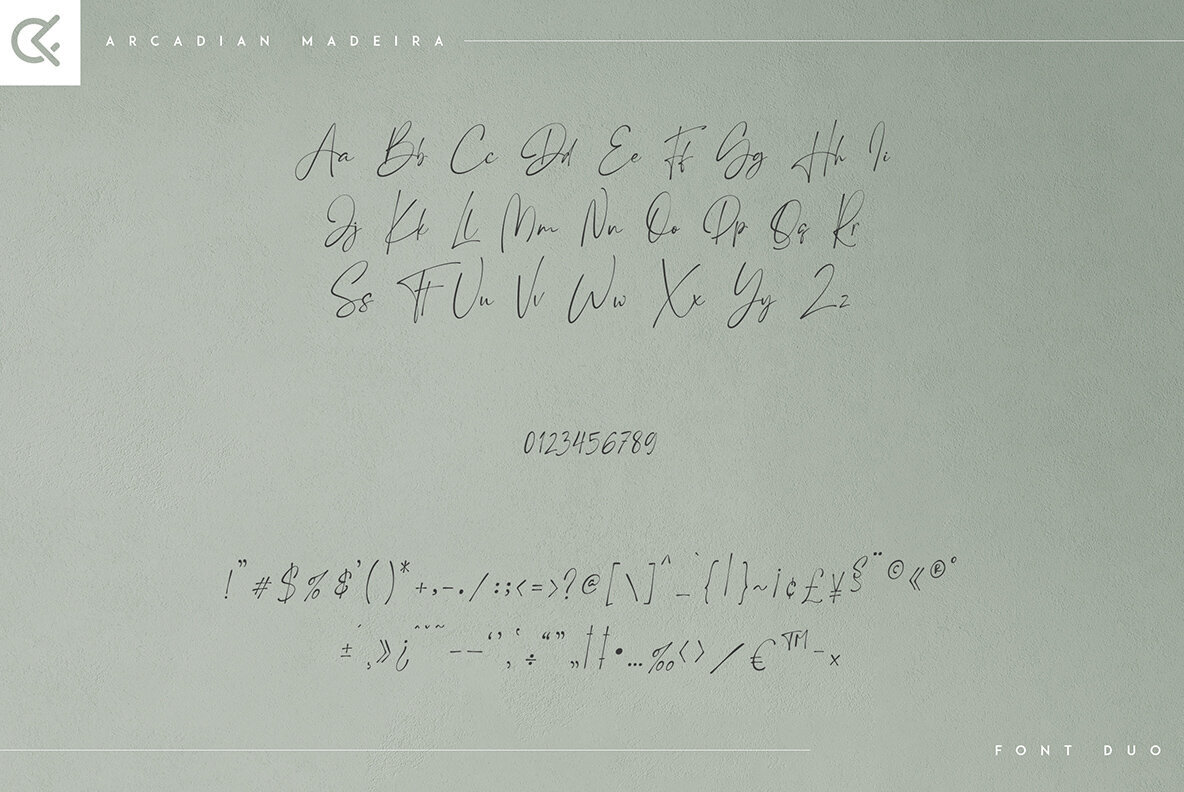 ARCADIAN MADEIRA
Aa Bb Cc Dd Ee Ff Gg Hh Ii
Jj Kk Ll Mm Nn Oo Pp Qq Rr
Ss Tt Uu Vv Ww Xx Yy Zz
0123456789
!"#$%&'()*+,-./:;<=>?@[\]^_`{|}~¡¢£¥§¨©«®°
±´¸»¿ˆˇ˘˜–—‘’‚÷“”„†‡•…‰‹›⁄€™−×
FONT DUO